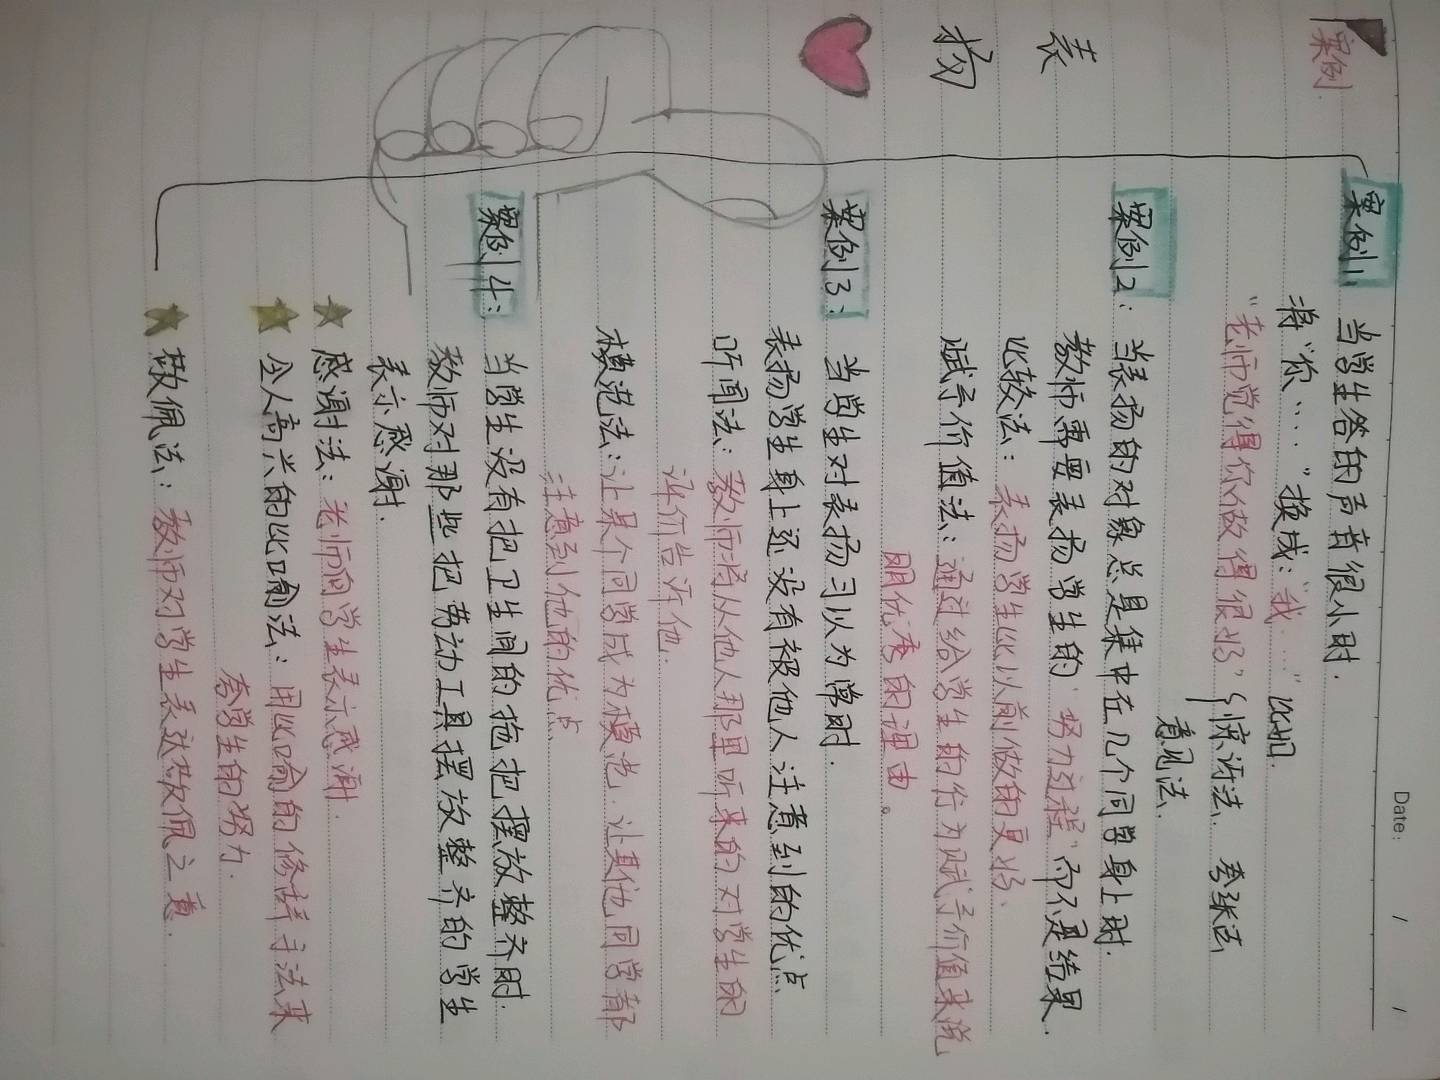 Date: / /
案例.
表
扬
案例1: 当学生答的声音很小时.
将"你...."换成:"我...."比如.
"老师觉得你做得很好"惊讶法. 夸张法
意见法.
案例2: 当表扬的对象总是集中在几个同学身上时.
教师需要表扬学生的"努力过程"而不是结果.
比较法: 表扬学生比以前做的更好.
赋予价值法: 通过给学生的行为赋予价值来说
明优秀的理由。
案例3: 当学生对表扬习以为常时.
表扬学生身上还没有被他人注意到的优点
听闻法: 教师将从他人那里听来的对学生的
评价告诉他.
模范法: 让某个同学成为模范. 让其他同学都
注意到他的优点
案例4: 当学生没有把卫生间的拖把摆放整齐时.
教师对那些把劳动工具摆放整齐的学生
表示感谢.
感谢法: 老师向学生表示感谢.
令人高兴的比喻法: 用比喻的修辞手法来
夸学生的努力.
敬佩法: 教师对学生表达敬佩之意.